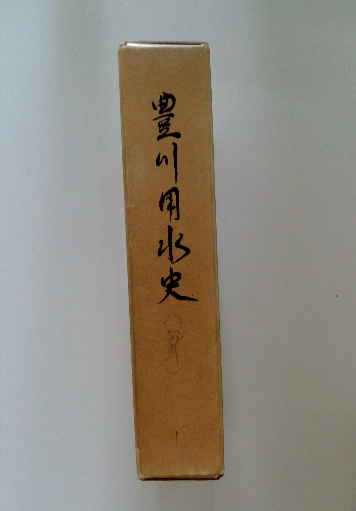 豊川用水史